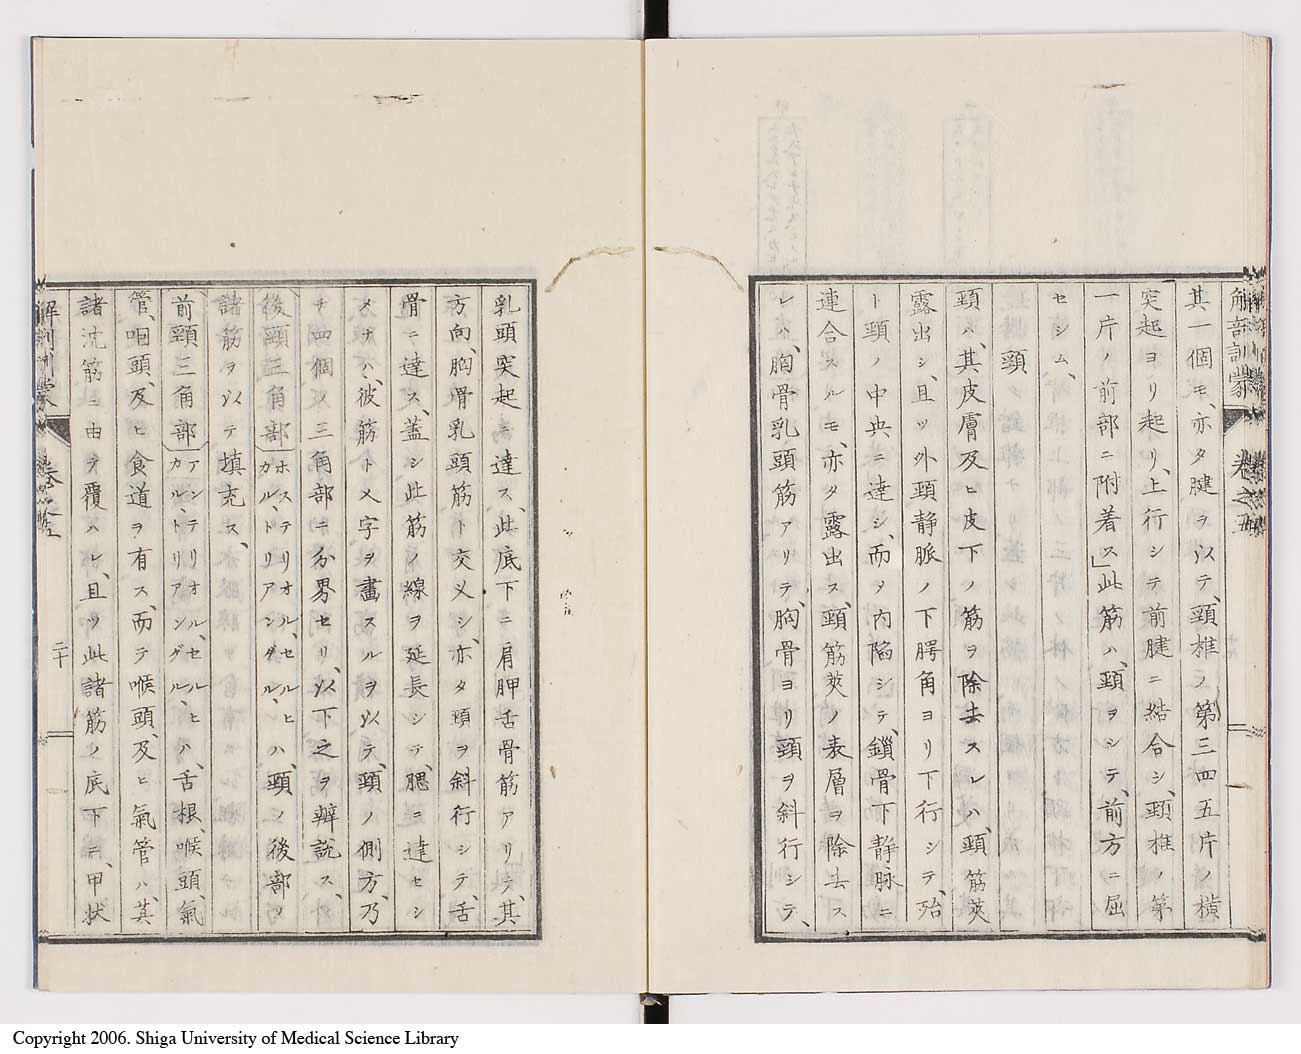 解剖訓蒙 卷之五
其一個モ、亦タ腱ヲ以テ、頸椎ノ第三四五片ノ横
突起ヨリ起リ、上行シテ前腱ニ結合シ、頸椎ノ第
一片ノ前部ニ附着ス」此筋ハ、頸ヲシテ、前方ニ屈
セシム、
頸
頸ハ、其皮膚及ヒ皮下ノ筋ヲ除去スレハ、頸筋莢
露出シ、且ツ外頸靜脈ノ下腭角ヨリ下行シテ、殆
ト頸ノ中央ニ達シ、而メ内陷シテ、鎖骨下靜脉ニ
連合スルモ、亦タ露出ス、頸筋莢ノ表層ヲ除去ス
レハ、胸骨乳頭筋アリテ、胸骨ヨリ頸ヲ斜行シテ、
乳頭突起ニ達ス、此底下ニ肩胛舌骨筋アリテ、其
方向、胸骨乳頭筋ト交义シ、亦タ頸ヲ斜行シテ、舌
骨ニ達ス、蓋シ此筋ノ線ヲ延長シテ、腮ニ達セシ
メナハ、彼筋ト乂字ヲ畫スルヲ以テ、頸ノ側方、乃
チ四個ノ三角部ニ分界セリ、以下之ヲ辨説ス、
後頸三角部ホステリオル、セルヒカル、トリアンガル、ハ、頸ノ後部ノ
諸筋ヲ以テ填充ス、
前頸三角部アンテリオル、セルヒカル、トリアングル、ハ、舌根、喉頭、氣
管、咽頭、及ヒ食道ヲ有ス、而テ喉頭、及ヒ氣管ハ、其
諸沈筋ニ由テ覆ハレ、且ツ此諸筋ノ底下ニ、甲狀
解剖訓蒙 卷之五 二十
Copyright 2006. Shiga University of Medical Science Library